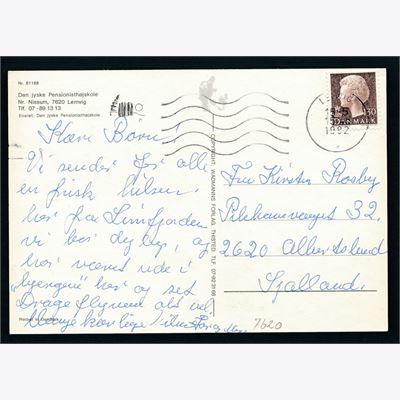 Nr. 81188
Den jyske Pensionisthøjskole
Nr. Nissum, 7620 Lemvig
Tlf. 07-89 13 13
Eneret: Den jyske Pensionisthøjskole
Kære Børn!
Vi sender Jer alle
en frisk hilsen
her fra Limfjorden
vi bor dejligt, og
har været ude i
her og set
Drage flyvend
Mange kærlige hilsner
COPYRIGHT: WARMANNS FORLAG, THISTED, TLF. 07-92 21 66
130
DANMARK
1982
Fru Kirsten Rosby
32.
2620 Albertslund
Sjælland.
7620